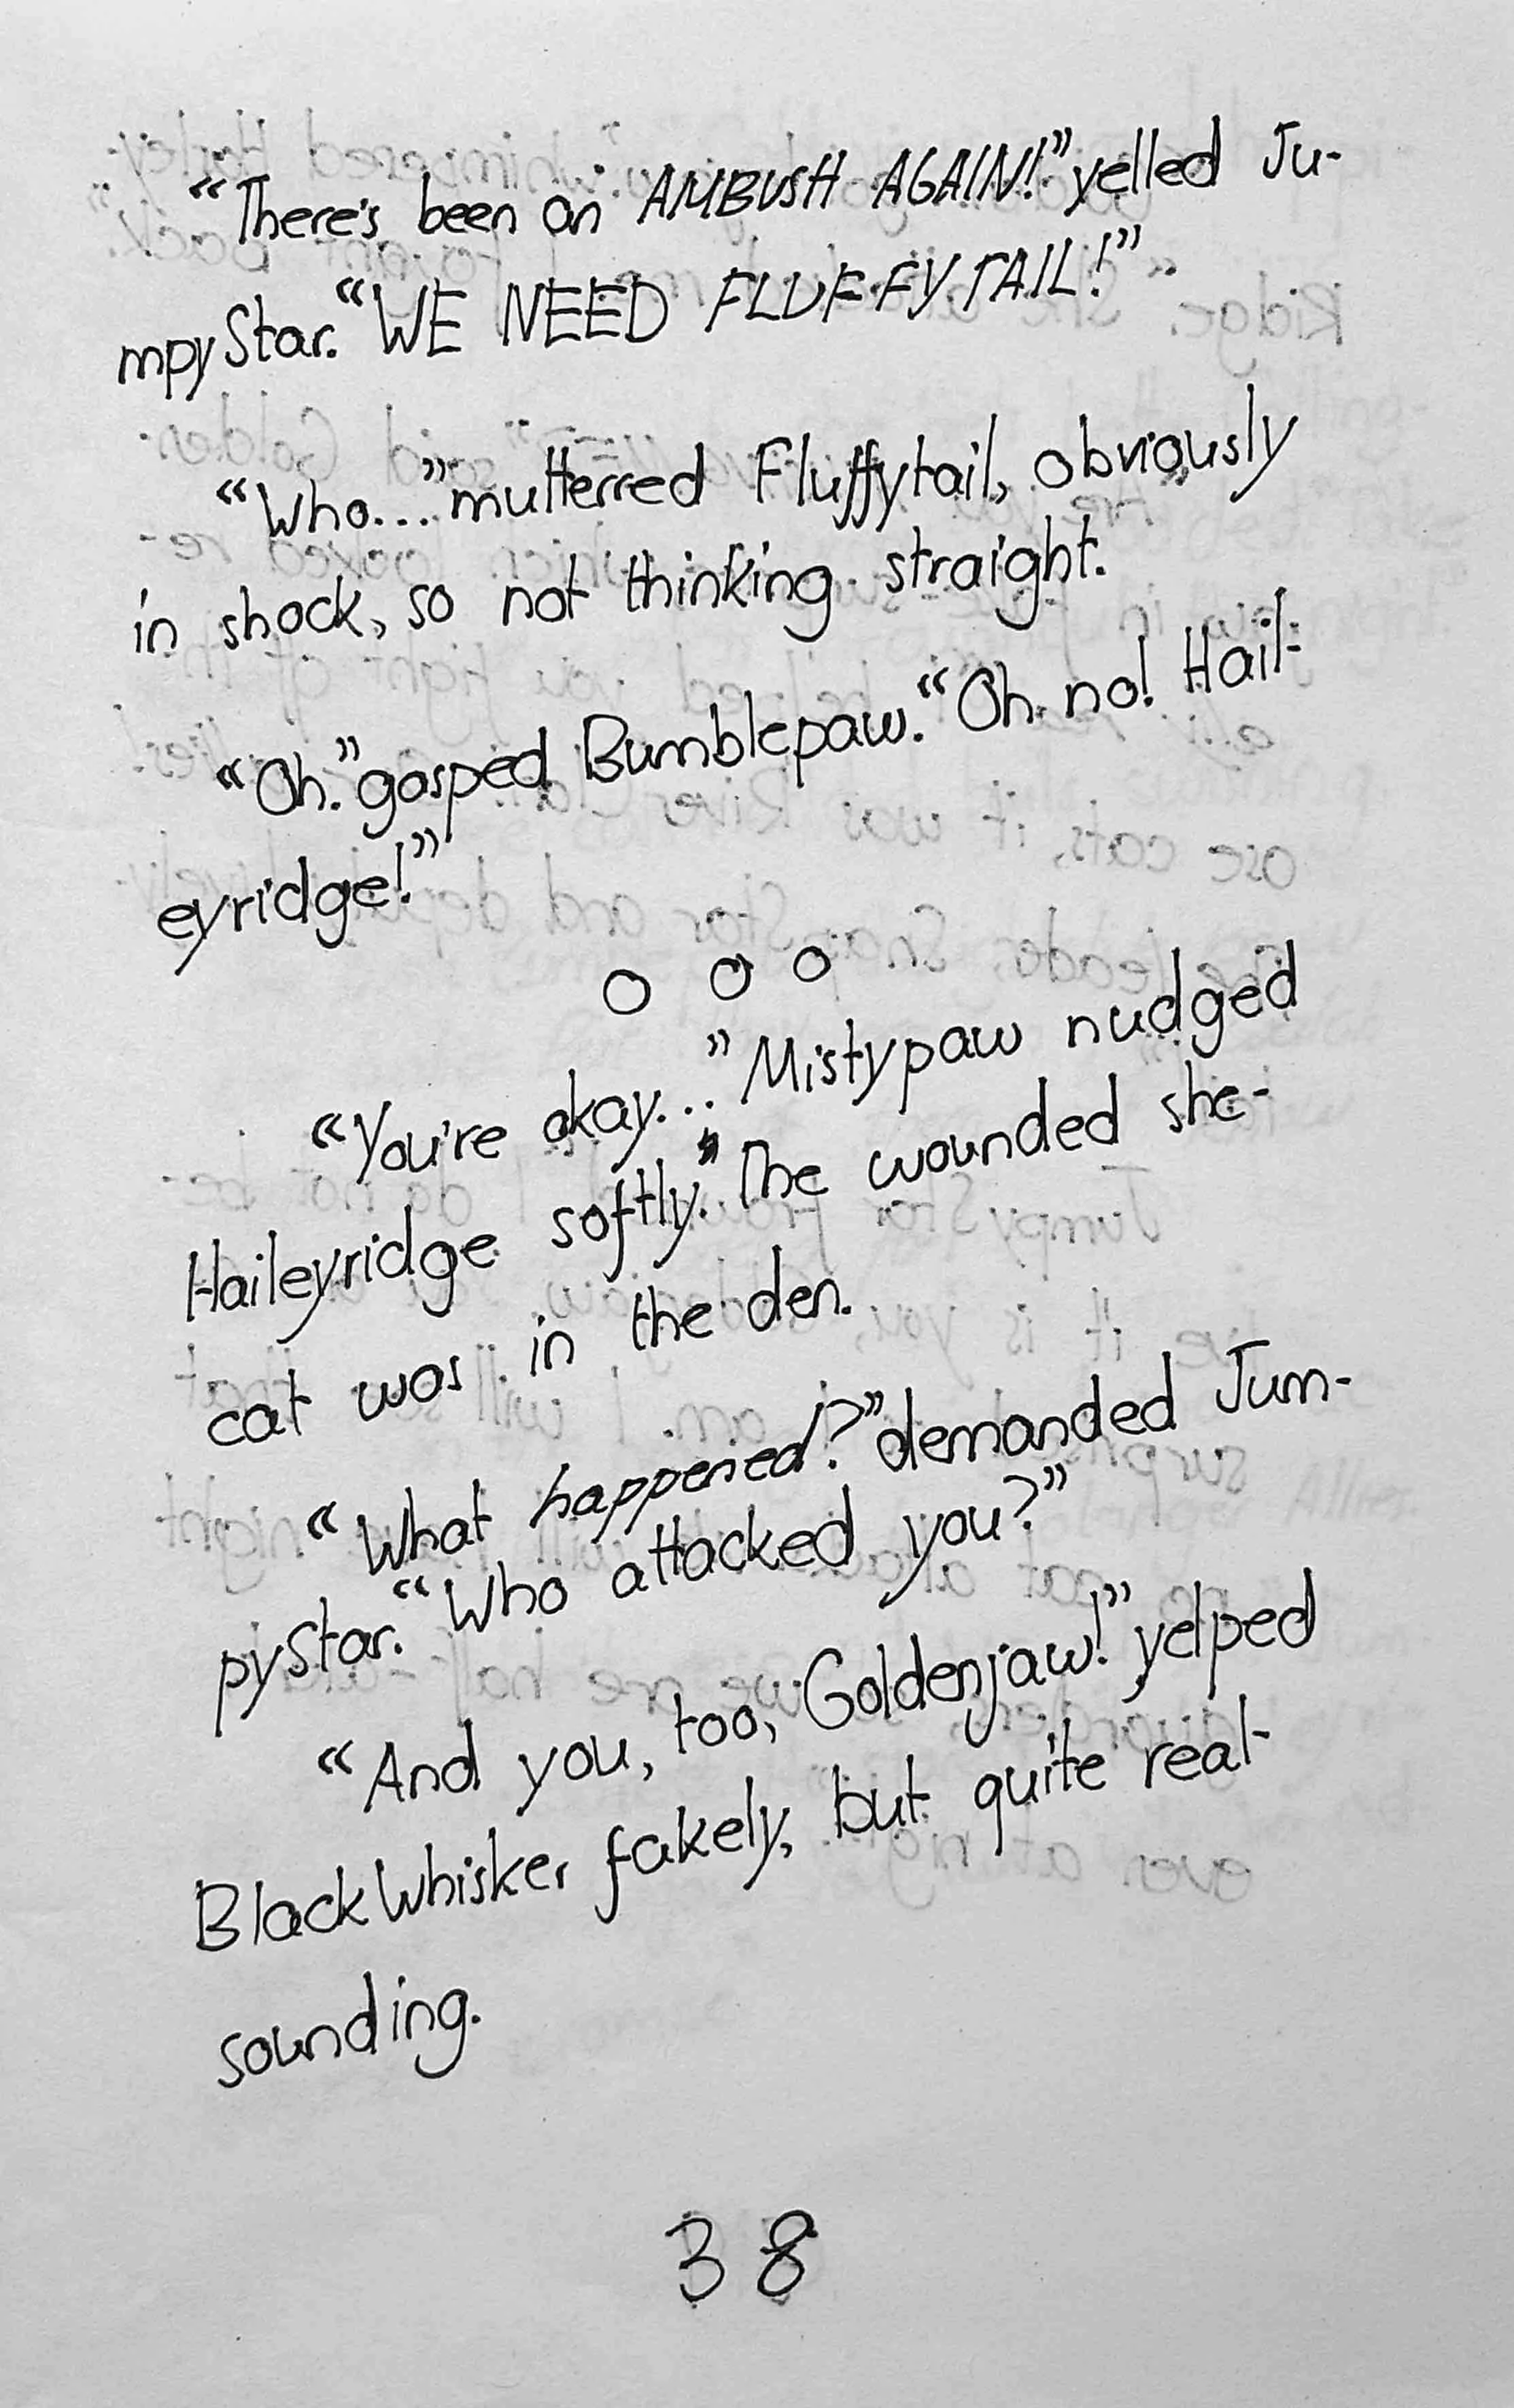 “There's been an AMBUSH AGAIN!” yelled Ju-
mpyStar. “WE NEED FLUFFYTAIL!”
“Who...” mutterred Fluffytail, obviously
in shock, so not thinking straight.
“Oh.” gasped Bumblepaw. “Oh no! Hail-
eyridge!”
O O O
“You're okay...” Mistypaw nudged
Haileyridge softly.” The wounded she-
cat was in the den.
“What happened?” demanded Jum-
pyStar. “Who attacked you?”
“And you, too, Goldenjaw!” yelped
BlackWhisker fakely, but quite real-
sounding.
38